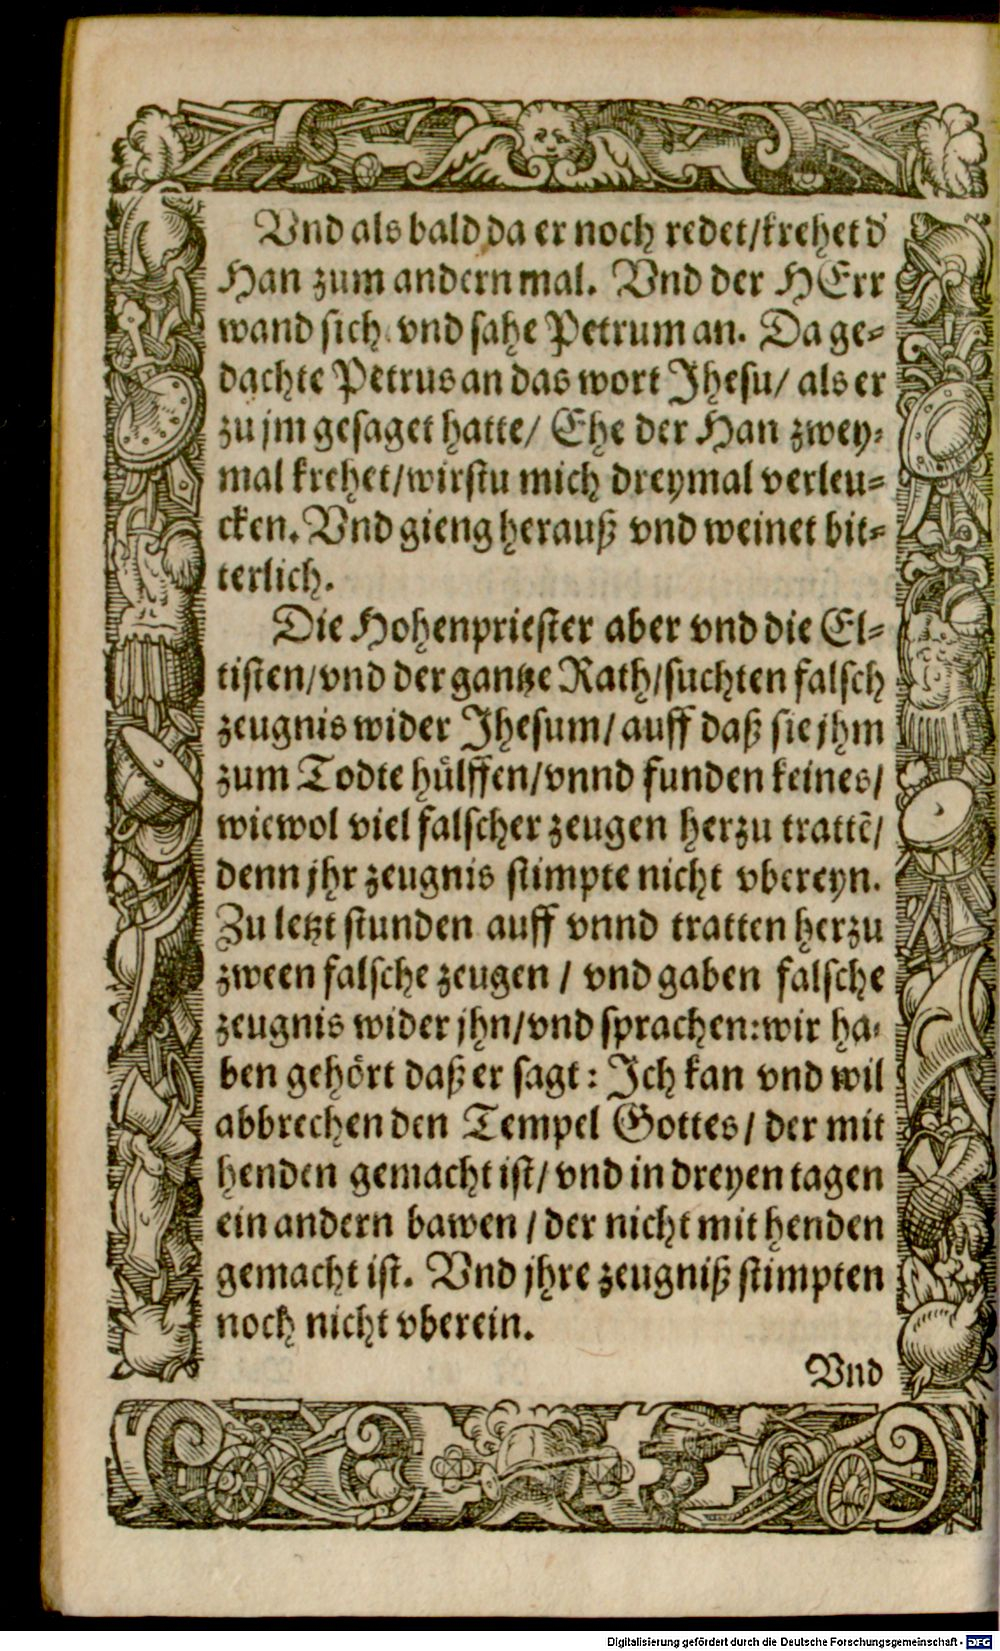 Vnd als bald da er noch redet/krehet d'
Han zum andern mal. Vnd der HErr
wand sich vnd sahe Petrum an. Da ge-
dachte Petrus an das wort Jhesu/ als er
zu jm gesaget hatte/ Ehe der Han zwey-
mal krehet/wirstu mich dreymal verleu-
cken. Vnd gieng herauß vnd weinet bit-
terlich.
Die Hohenpriester aber vnd die El-
tisten/vnd der gantze Rath/suchten falsch
zeugnis wider Jhesum/ auff daß sie jhm
zum Todte hülffen/vnnd funden keines/
wiewol viel falscher zeugen herzu trattẽ/
denn jhr zeugnis stimpte nicht vbereyn.
Zu letzt stunden auff vnnd tratten herzu
zween falsche zeugen / vnd gaben falsche
zeugnis wider jhn/vnd sprachen: wir ha-
ben gehört daß er sagt: Jch kan vnd wil
abbrechen den Tempel Gottes/ der mit
henden gemacht ist/ vnd in dreyen tagen
ein andern bawen / der nicht mit henden
gemacht ist. Vnd jhre zeugniß stimpten
noch nicht vberein.
Vnd
Digitalisierung gefördert durch die Deutsche Forschungsgemeinschaft - DFG